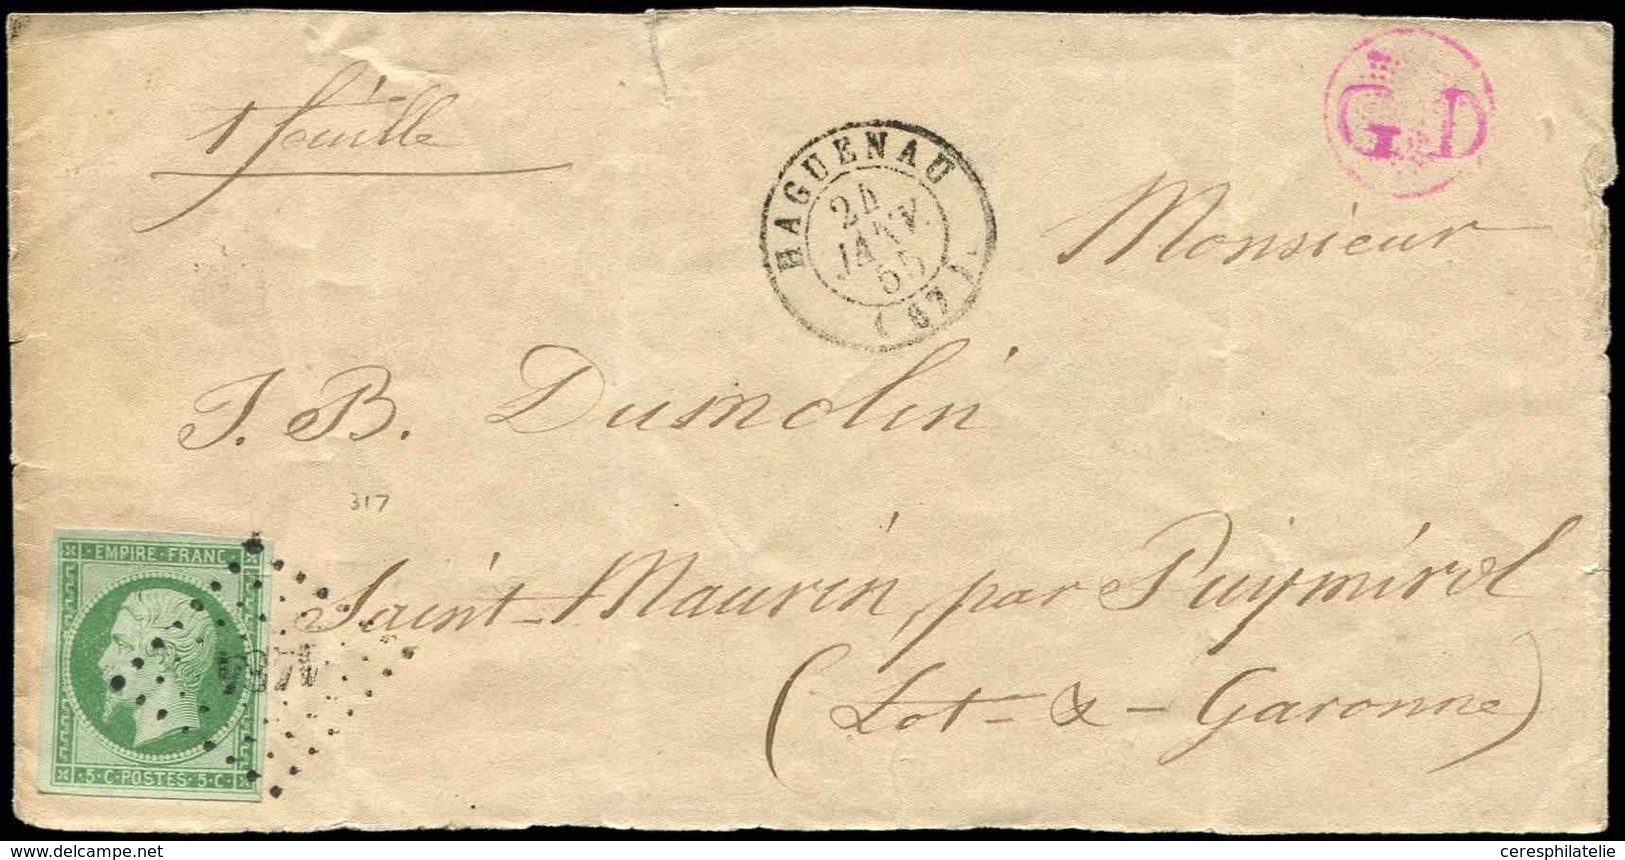 1 feuille
G.D
HAGUENAU
24
JANV.
55
(67)
Monsieur
J. B. Dumolin
317
Saint-Maurin, par Puymirol
(Lot-&-Garonne)
EMPIRE·FRANC
5·C·POSTES·5·C·
delcampe.net
ceresphilatelie